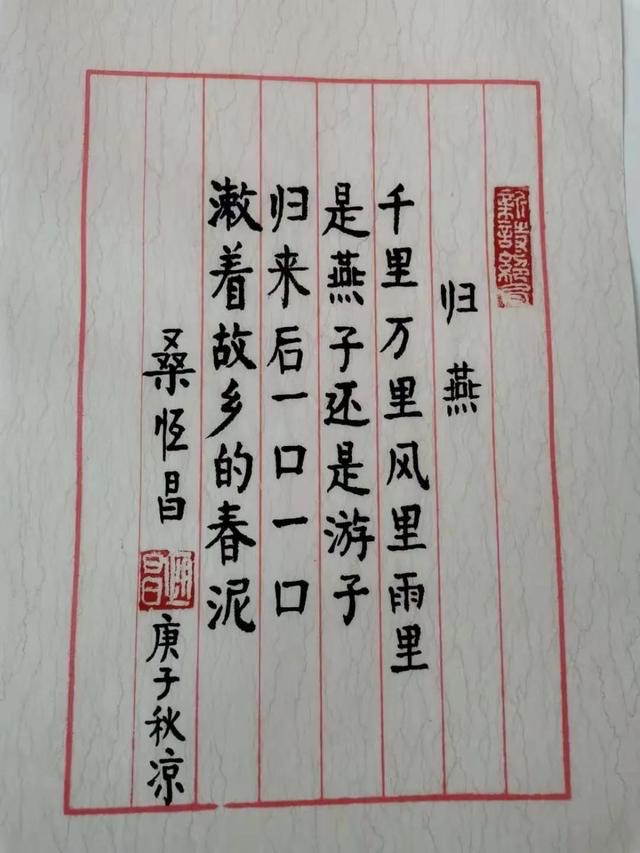 新诗绝句
归燕
千里万里风里雨里
是燕子还是游子
归来后一口一口
漱着故乡的春泥
桑恒昌
恒昌
庚子秋凉